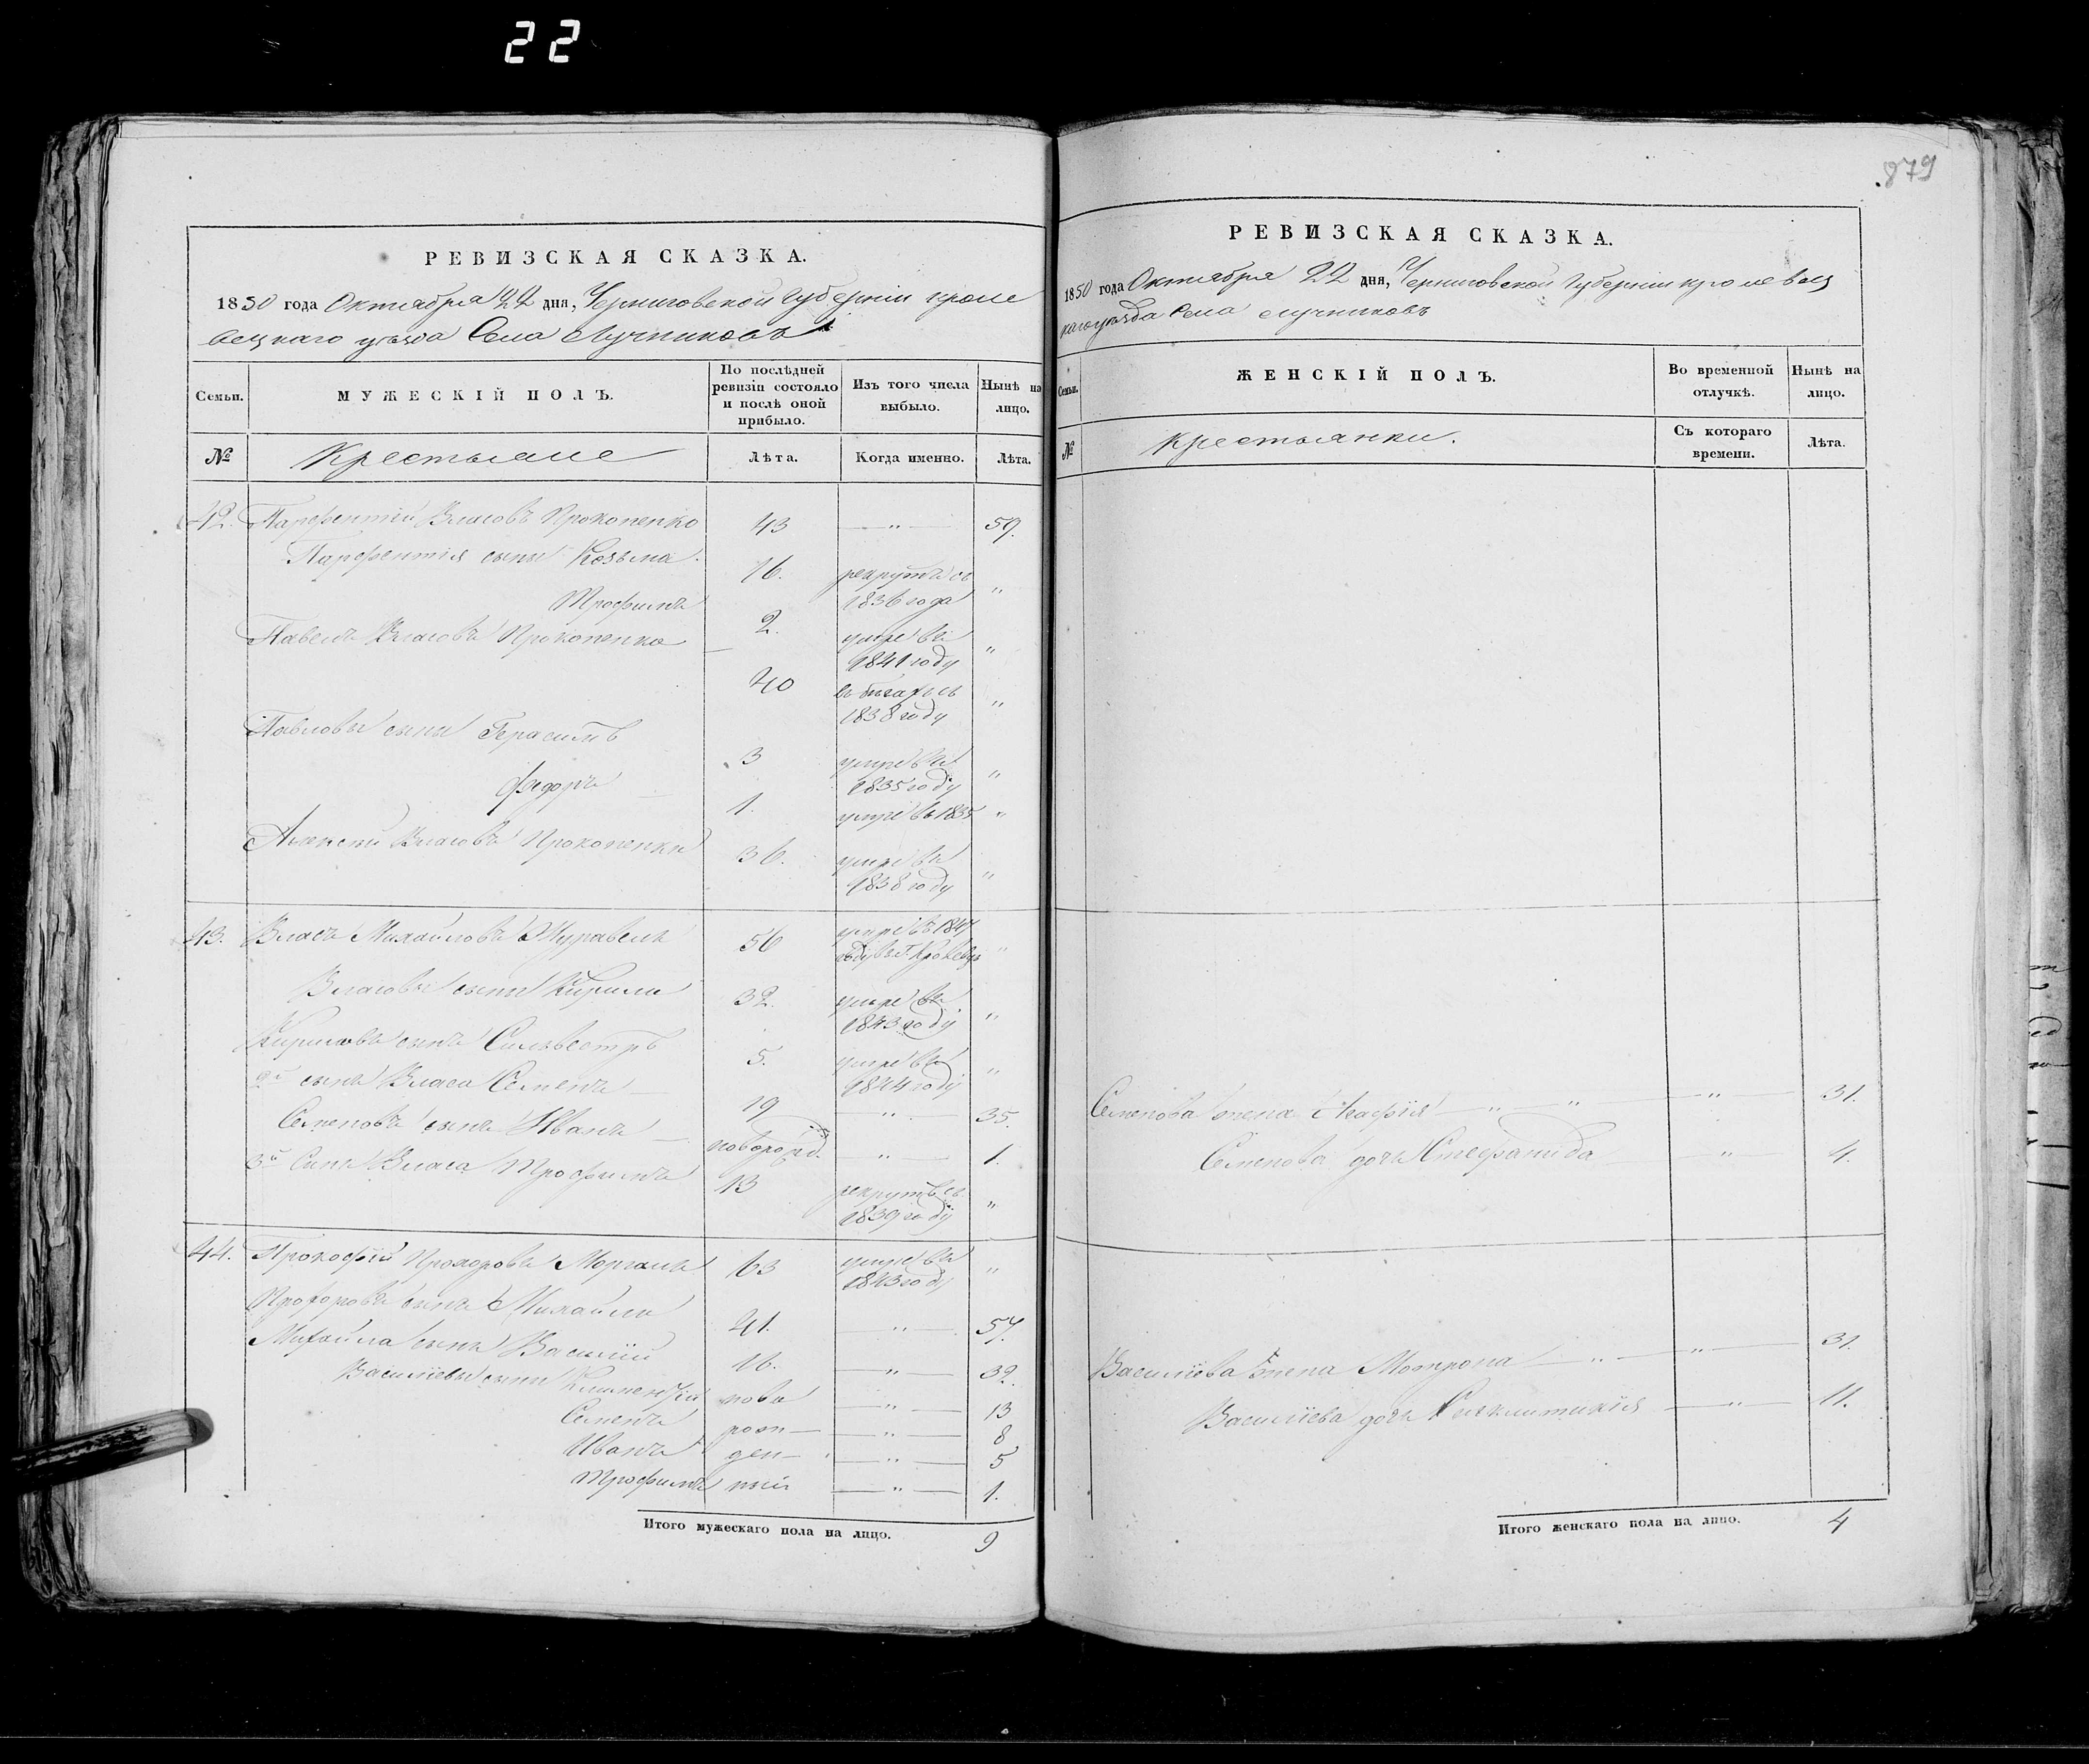 22
879
РЕВИЗСКАЯ СКАЗКА.
1850 года Октября 22 дня, Черниговской Губерніи кроле
вецкаго уѣзда Села Лучниковъ
Семьи.
МУЖЕСКІЙ ПОЛЪ.
По послѣдней ревизіи состояло и послѣ оной прибыло.
Изъ того числа выбыло.
Нынѣ на лицо.
№
Крестьяне
Лѣта.
Когда именно.
Лѣта.
42. Парфентій Власовъ Прокопенко 43 — " — 59.
Парфентія сыны Козьма. 16. рекрутъ съ 1836 года "
Трофимъ 2. умре въ 1841 году "
Павелъ Власовъ Прокопенко 40 въ бѣгахъ съ 1838 году "
Павловы сыны Герасимъ 3 умре въ 1835 году "
Федоръ 1. умре въ 1835 "
Алексей Власовъ Прокопенко 36. умре въ 1838 году "
43. Власъ Михайловъ Журавель 56 умре въ 1847 году въ Г. "
Власовы сыны Кирила 32. умре въ 1843 году "
Кириловъ сынъ Сильвестръ 5. умре въ 1844 году "
2й сынъ Власа Семенъ 19 — " — 35.
Семеновъ сынъ Иванъ новорожд. — " — 1.
3й Сынъ Власа Трофимъ 13 рекрутъ съ 1839 году "
44. Прокофій Прохоровъ Моргаль 63 умре въ 1843 году "
Прохоровъ сынъ Михайла 41. — " — 57.
Михайла сынъ Василій 16. — " — 32.
Василіевы сыны Климентій ново — " — 13
Семенъ рож — " — 8
Иванъ ден — " — 5
Трофимъ ный — " — 1.
Итого мужескаго пола на лицо. 9
РЕВИЗСКАЯ СКАЗКА.
1850 года Октября 22 дня, Черниговской Губерніи кролевец
каго уѣзда Села Лучниковъ
Семьи.
ЖЕНСКІЙ ПОЛЪ.
Во временной отлучкѣ.
Нынѣ на лицо.
№
Крестьянки.
Съ котораго времени.
Лѣта.
Семенова жена Агафія — " — " — " — 31.
Семенова дочь Стефанида — " — 4.
Василіева жена Мотрона — " — " — 31.
Василіева дочь Синклитикія — " — 11.
Итого женскаго пола на лицо. 4